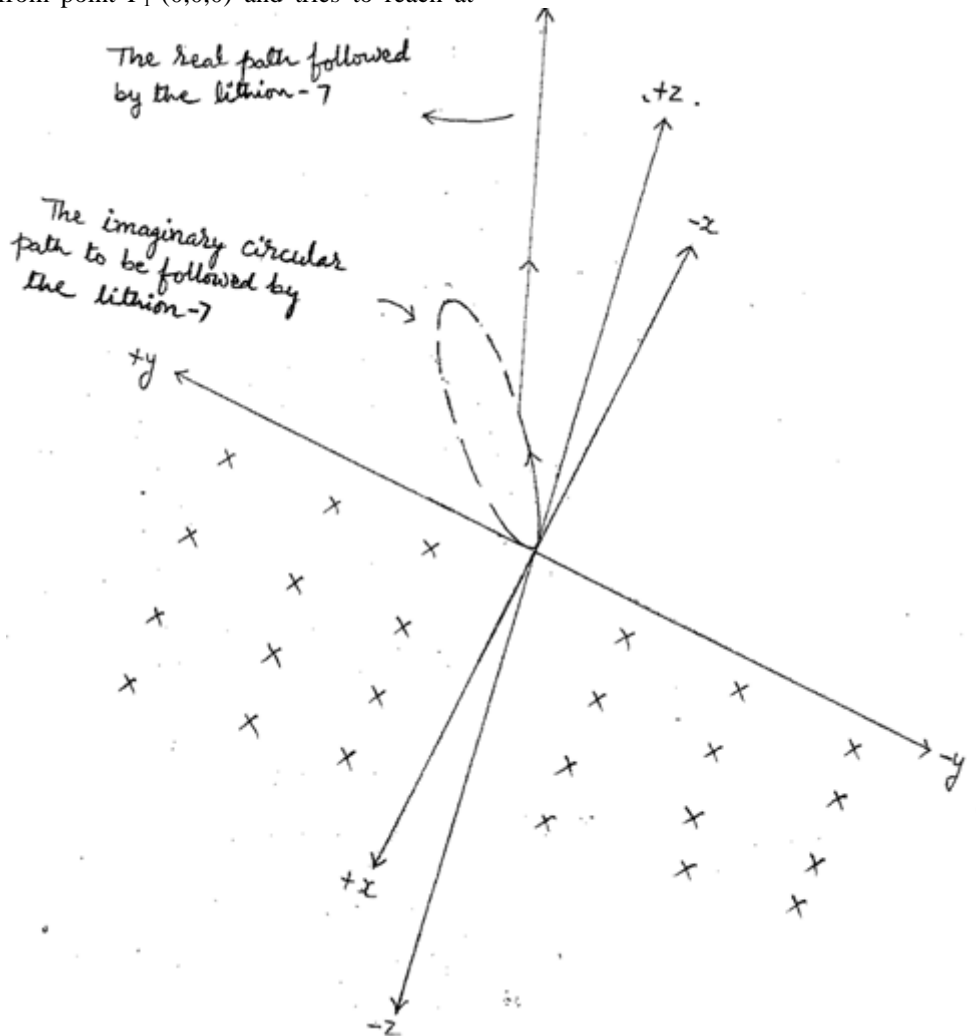 from point P₁ (0,0,0) and tries to reach at
The real path followed
by the lithion-7
+z
-x
The imaginary circular
path to be followed by
the lithion-7
+y
-y
+x
-z